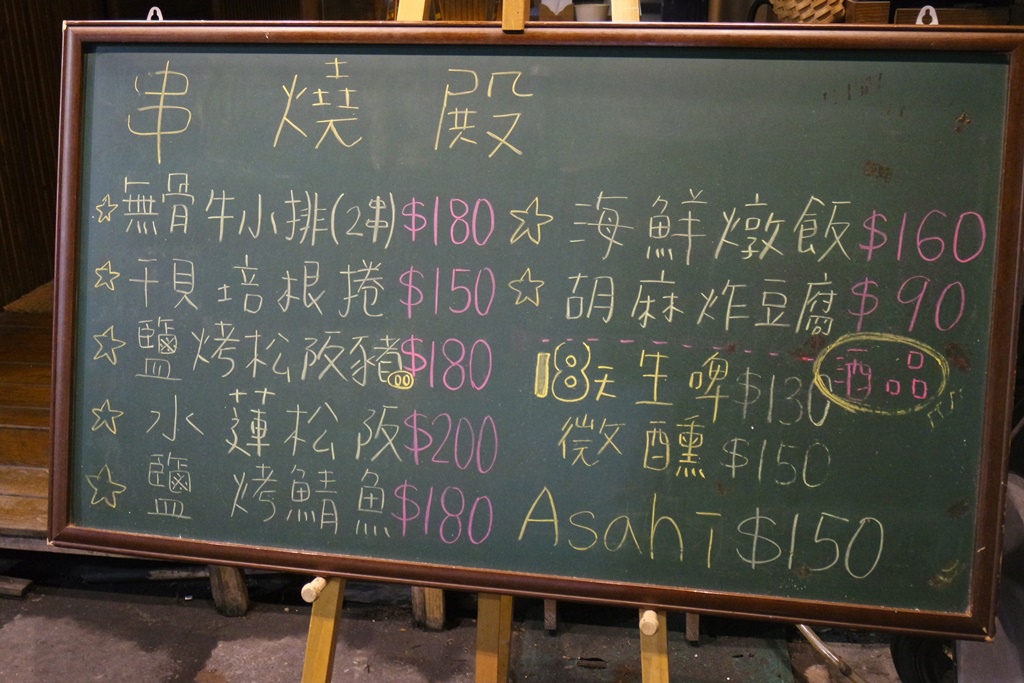 串燒殿
☆無骨牛小排(2串)$180
☆干貝培根捲$150
☆鹽烤松阪豬$180
☆水蓮松阪$200
☆鹽烤鯖魚$180
☆海鮮燉飯$160
☆胡麻炸豆腐$90
酒品
18天生啤$130
微醺$150
Asahi $150